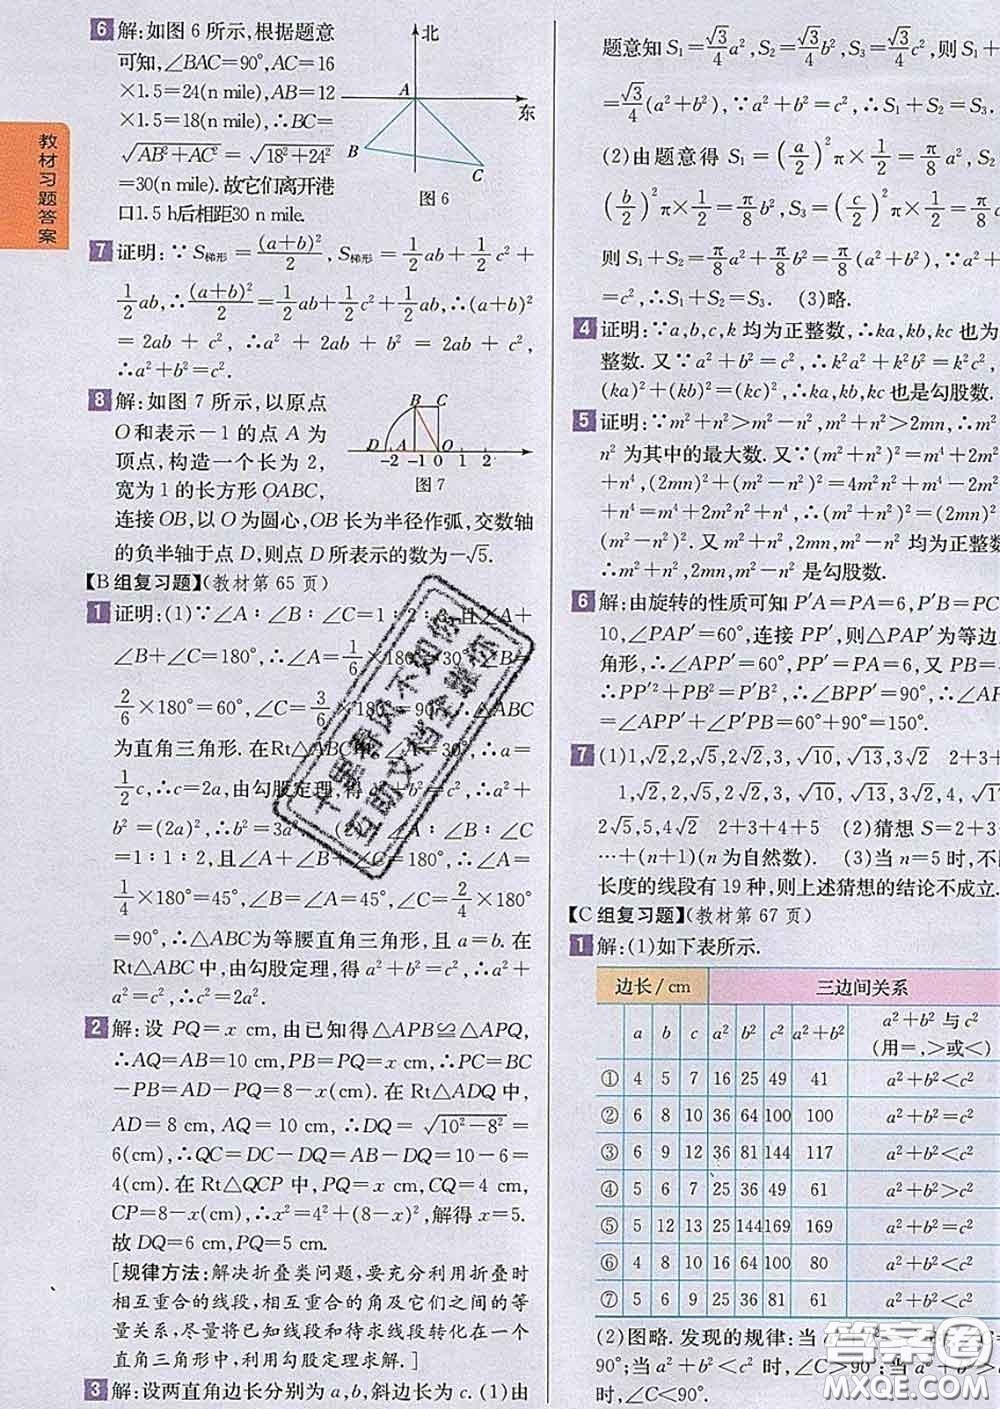 教材习题答案
6 解:如图 6 所示,根据题意
可知,∠BAC=90°,AC=16
×1.5=24(n mile),AB=12
×1.5=18(n mile),∴BC=
√(AB²+AC²)=√(18²+24²)
=30(n mile).故它们离开港
口1.5 h后相距30 n mile.
北
A
东
B
C
图 6
7 证明:∵S梯形=(a+b)²/2,S梯形=1/2ab+1/2c²+
1/2ab,∴(a+b)²/2=1/2ab+1/2c²+1/2ab,∴(a+b)²
=2ab+c²,∴a²+2ab+b²=2ab+c²,
∴a²+b²=c².
8 解:如图 7 所示,以原点
O 和表示-1 的点 A 为
顶点,构造一个长为 2,
宽为 1 的长方形 OABC,
连接 OB,以 O 为圆心,OB 长为半径作弧,交数轴
的负半轴于点 D,则点 D 所表示的数为-√5.
B C
D A O
-2 -1 0 1 2
图 7
【B 组复习题】(教材第 65 页)
1 证明:(1)∵∠A∶∠B∶∠C=1∶2∶3,且∠A+
∠B+∠C=180°,∴∠A=1/6×180°=30°,∠B=
2/6×180°=60°,∠C=3/6×180°=90°,∴△ABC
为直角三角形.在Rt△ABC中,∠A=30°,∴a=
1/2c,∴c=2a,由勾股定理,得a²+b²=c²,∴a²+
b²=(2a)²,∴b²=3a². (2)∵∠A∶∠B∶∠C
=1∶1∶2,且∠A+∠B+∠C=180°,∴∠A=
1/4×180°=45°,∠B=∠A=45°,∠C=2/4×180°
=90°,∴△ABC为等腰直角三角形,且 a=b.在
Rt△ABC 中,由勾股定理,得 a²+b²=c²,∴a²+
a²=c²,∴c²=2a².
2 解:设 PQ=x cm,由已知得△APB≌△APQ,
∴AQ=AB=10 cm,PB=PQ=x cm,∴PC=BC
-PB=AD-PQ=8-x(cm).在 Rt△ADQ 中,
AD=8 cm,AQ=10 cm,∴DQ=√(10²-8²)=
6(cm),∴QC=DC-DQ=AB-DQ=10-6=
4(cm).在 Rt△QCP 中,PQ=x cm,CQ=4 cm,
CP=8-x(cm),∴x²=4²+(8-x)²,解得 x=5.
故 DQ=6 cm,PQ=5 cm.
[规律方法:解决折叠类问题,要充分利用折叠时
相互重合的线段,相互重合的角及它们之间的等
量关系,尽量将已知线段和待求线段转化在一个
直角三角形中,利用勾股定理求解.]
3 解:设两直角边长分别为 a,b,斜边长为 c.(1)由
题意知 S₁=√3/4a²,S₂=√3/4b²,S₃=√3/4c²,则 S₁+
=√3/4(a²+b²),∵a²+b²=c²,∴S₁+S₂=S₃.
(2)由题意得 S₁=(a/2)²π×1/2=π/8a²,S₂
(b/2)²π×1/2=π/8b²,S₃=(c/2)²π×1/2=π/8
则 S₁+S₂=π/8a²+π/8b²=π/8(a²+b²),∵a²+
=c²,∴S₁+S₂=S₃. (3)略.
4 证明:∵a,b,c,k 均为正整数,∴ka,kb,kc 也为
整数.又∵a²+b²=c²,∴k²a²+k²b²=k²c²,
(ka)²+(kb)²=(kc)²,∴ka,kb,kc 也是勾股数.
5 证明:∵m²+n²>m²-n²,m²+n²>2mn,∴m²
n² 为其中的最大数.又∵(m²+n²)²=m⁴+2m²
+n⁴,(2mn)²+(m²-n²)²=4m²n²+m⁴-2m²
+n⁴=m⁴+2m²n²+n⁴,∴(m²+n²)²=(2mn)
(m²-n²)².又 m²+n²,m²-n²,2mn 均为正整
∴m²+n²,m²-n²,2mn 是勾股数.
6 解:由旋转的性质可知 P′A=PA=6,P′B=PC
10,∠PAP′=60°,连接 PP′,则△PAP′为等边
角形,∴∠APP′=60°,PP′=PA=6,又 PB=
∴PP′²+PB²=P′B²,∴∠BPP′=90°,∴∠
=∠APP′+∠P′PB=60°+90°=150°.
7 (1)1,√2,√5,2,2√2 2+3 1,√2,√5,2,2√2,3,√10,√13,3√2 2+3+
1,√2,√5,2,2√2,3,√10,√13,3√2,4
2√5,5,4√2 2+3+4+5 (2)猜想 S=2+3
…+(n+1)(n 为自然数). (3)当 n=5 时,不
长度的线段有 19 种,则上述猜想的结论不成立.
【C 组复习题】(教材第 67 页)
1 解:(1)如下表所示.
边长/cm 三边间关系
a b c a² b² c² a²+b² a²+b² 与 c² (用=,>或<)
① 4 5 7 16 25 49 41 a²+b²<c²
② 6 8 10 36 64 100 100 a²+b²=c²
③ 6 9 12 36 81 144 117 a²+b²<c²
④ 5 6 7 25 36 49 61 a²+b²>c²
⑤ 5 12 13 25 144 169 169 a²+b²=c²
⑥ 4 8 10 16 64 100 80 a²+b²<c²
⑦ 5 6 9 25 36 81 61 a²+b²<c²
(2)图略.发现的规律:当
90°;当 a²+b²<c² 时,∠C>90°;当 a²+b²
时,∠C<90°.
千里春风不如你
互助文档全靠你
答案圈
MXQE.COM